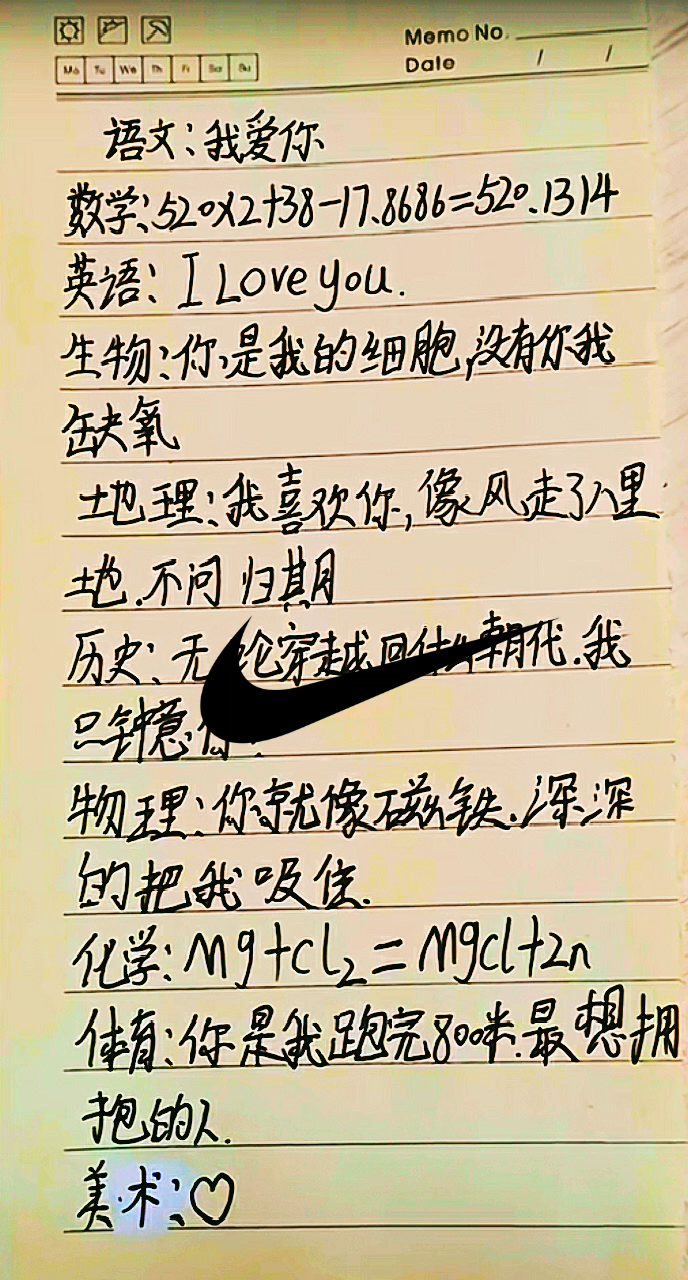 Memo No.
Date / /
Mo Tu We Th Fr Sa Su
语文:我爱你
数学:520×2+38-17.8686=520.1314
英语: I Love you.
生物:你是我的细胞,没有你我
缺氧
地理:我喜欢你,像风走了八里
地.不问归期
历史:无论穿越回什么朝代.我
只钟意你.
物理:你就像磁铁.深深
的把我吸住.
化学:Mg+Cl₂=MgCl+Zn
体育:你是我跑完800米.最想拥
抱的人.
美术:♡